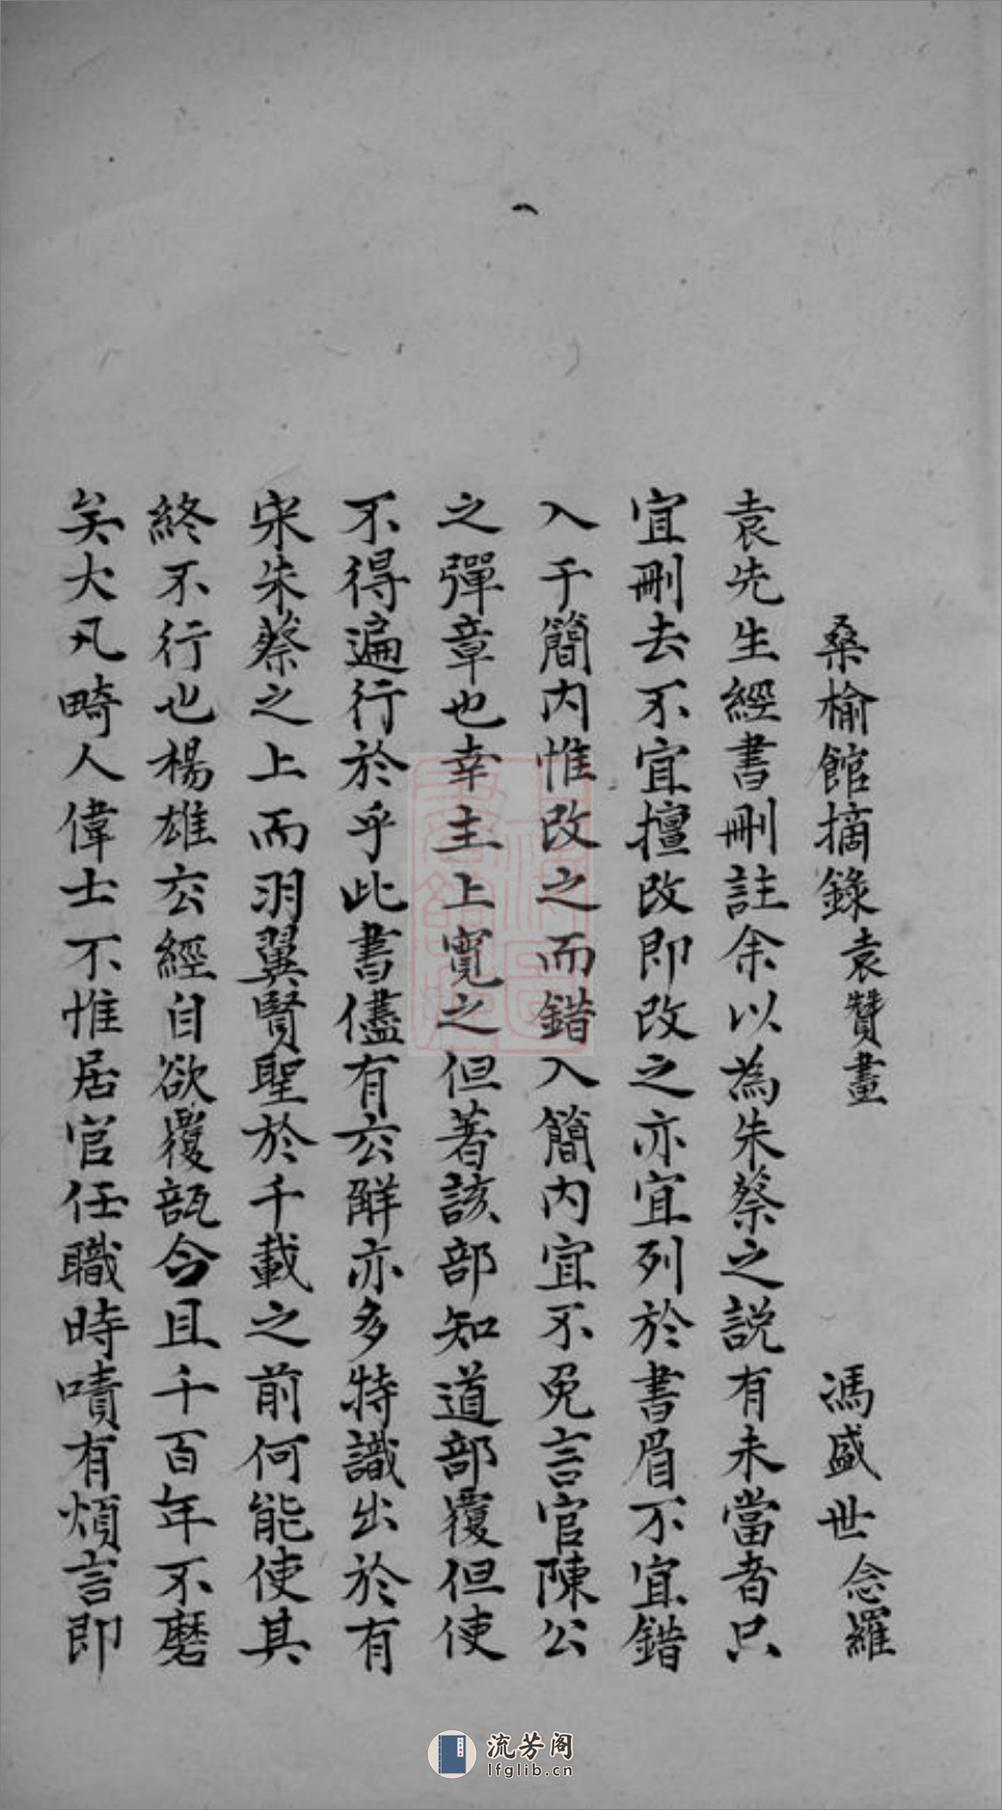 桑榆館摘錄袁贊畫　馮盛世念羅
袁先生經書刪註余以為朱蔡之說有未當者只
宜刪去不宜擅改即改之亦宜列於書眉不宜錯
入于簡內惟改之而錯入簡內宜不免言官陳公
之彈章也幸主上寬之但著該部知道部覆但使
不得遍行於乎此書儘有玄解亦多特識出於有
宋朱蔡之上而羽翼賢聖於千載之前何能使其
終不行也楊雄玄經自欲覆瓿今且千百年不磨
矣大凡畸人偉士不惟居官任職時嘖有煩言即
流芳阁
lfglib.cn